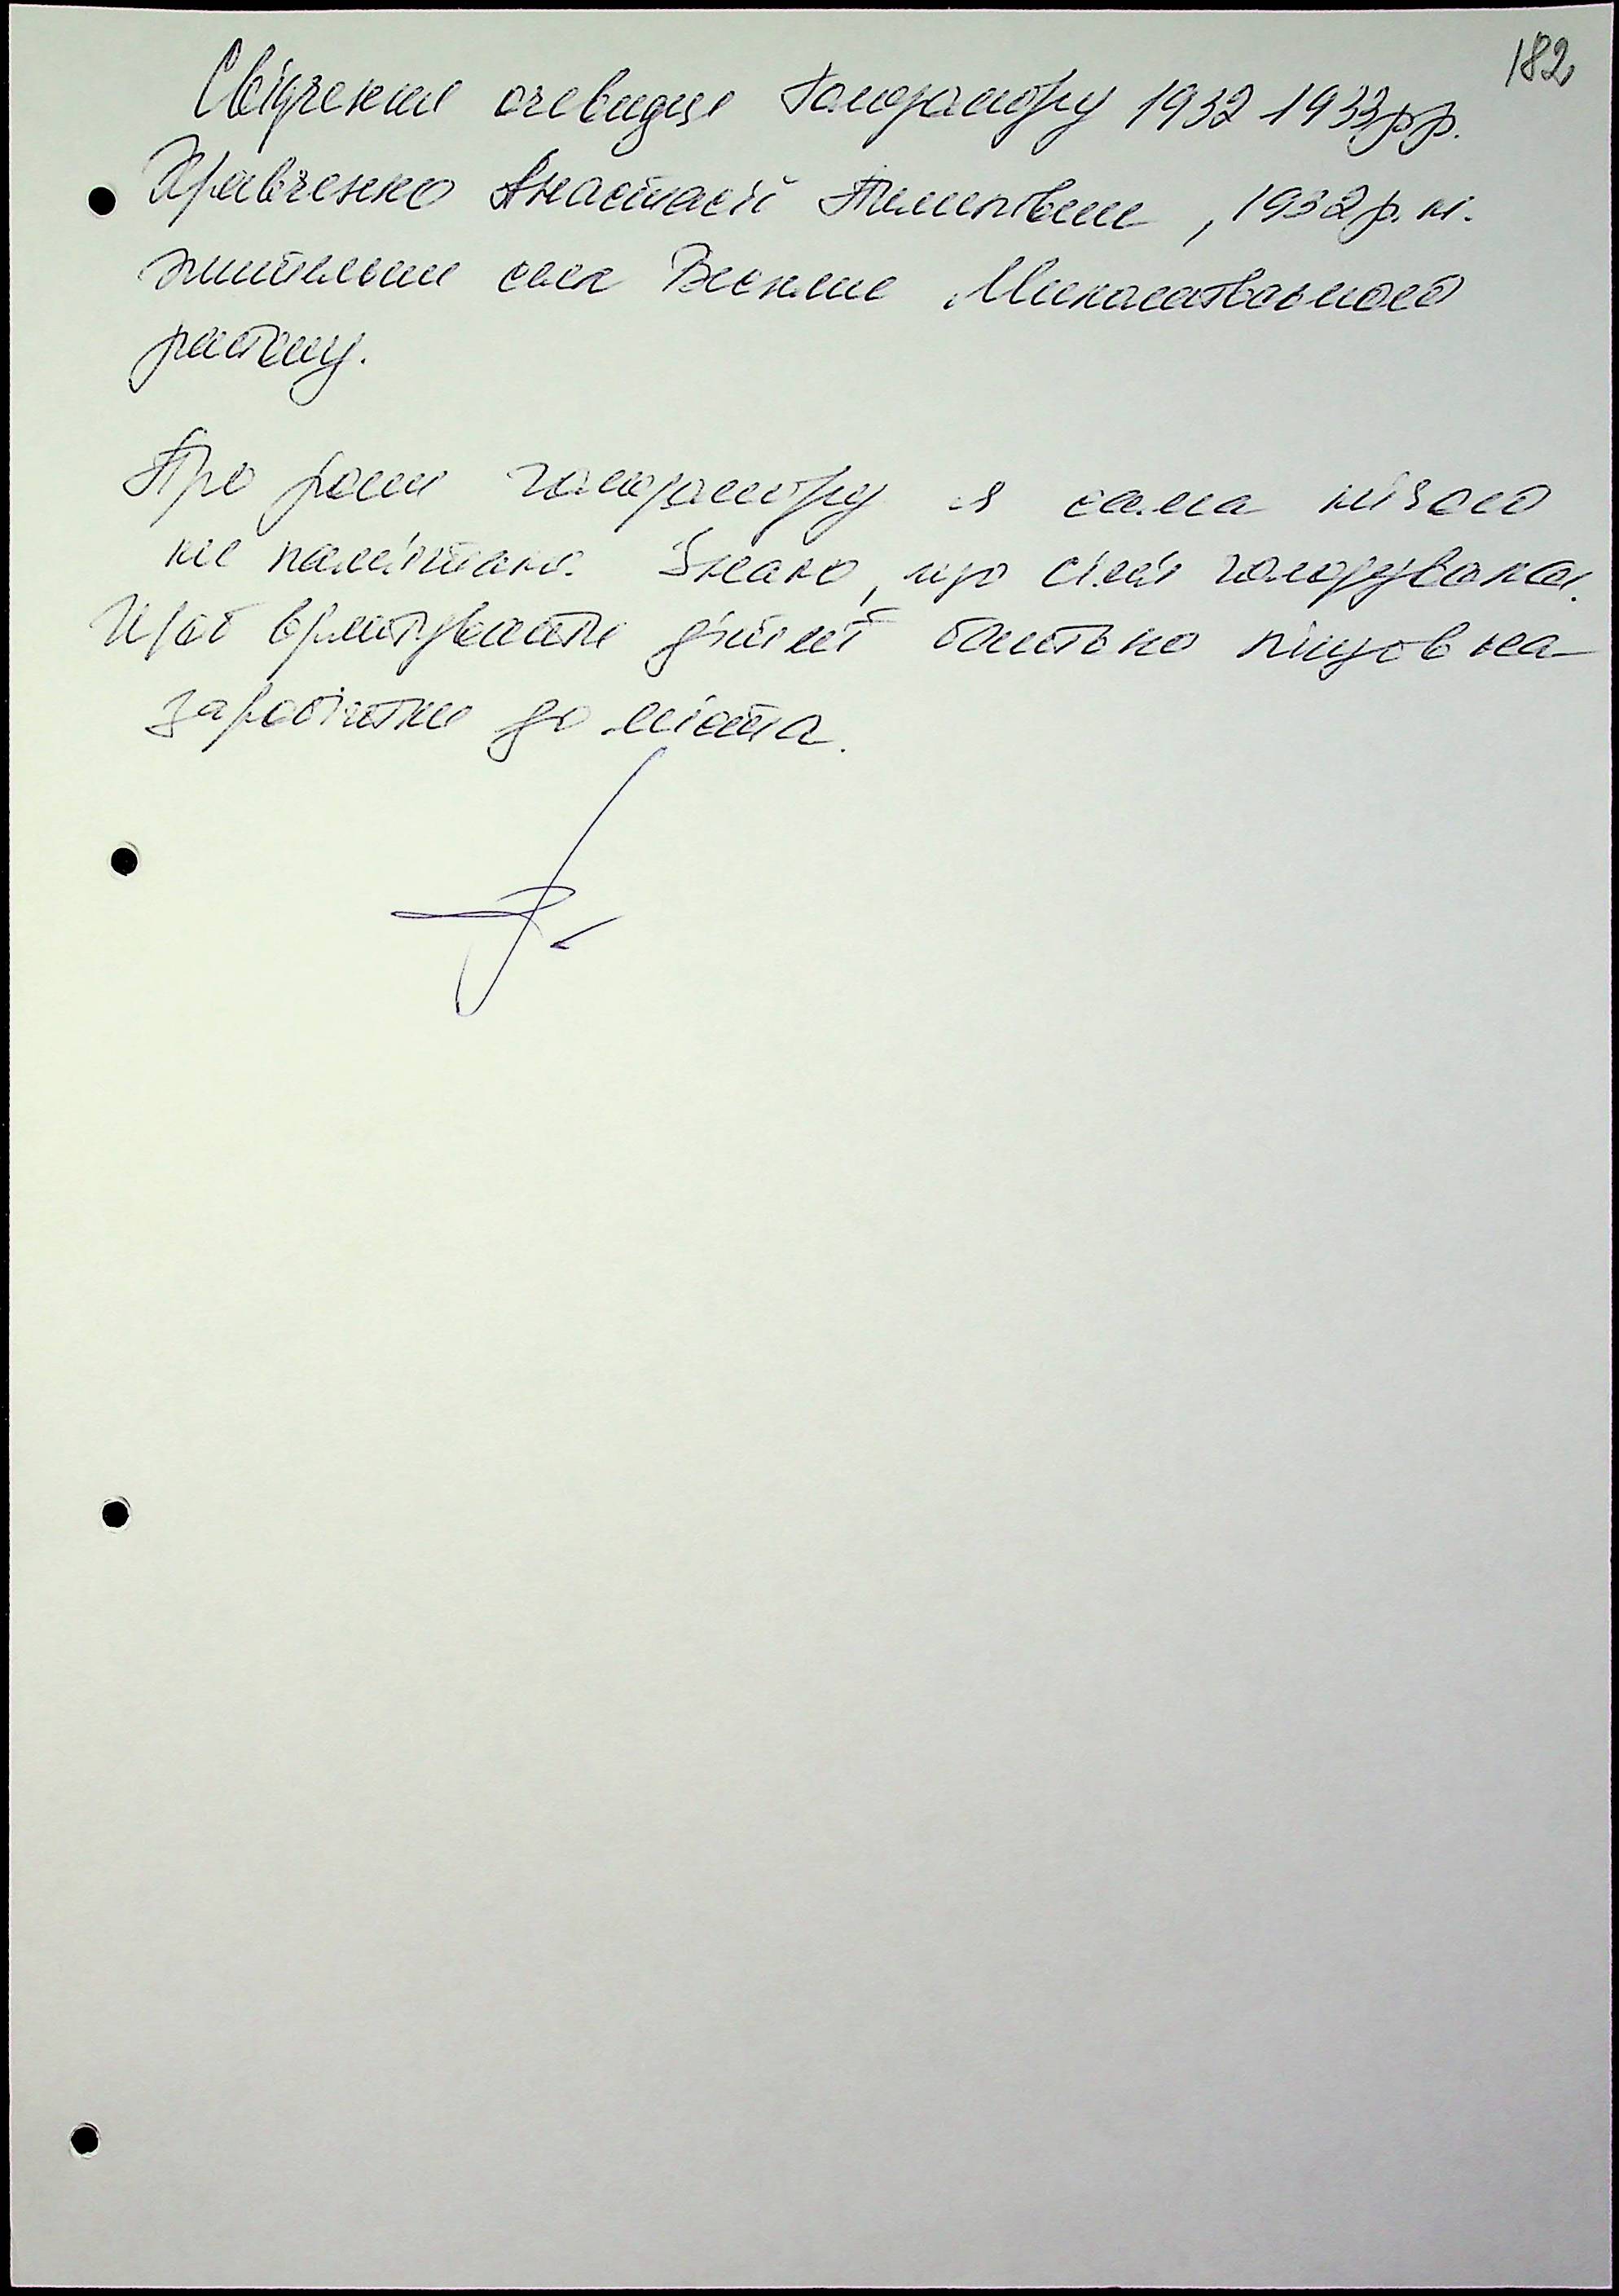 182
Свідчення очевидця Голодомору 1932 1933 рр.
Кравченко Анастасії Пилипівни, 1932 р. н.
жительки села Весняне Миколаївського
району.
Про роки голодомору я сама нічого
не пам'ятаю. Знаю, що сім'я голодувала.
Щоб врятувати дітей батько пішов на
заробітки до міста.